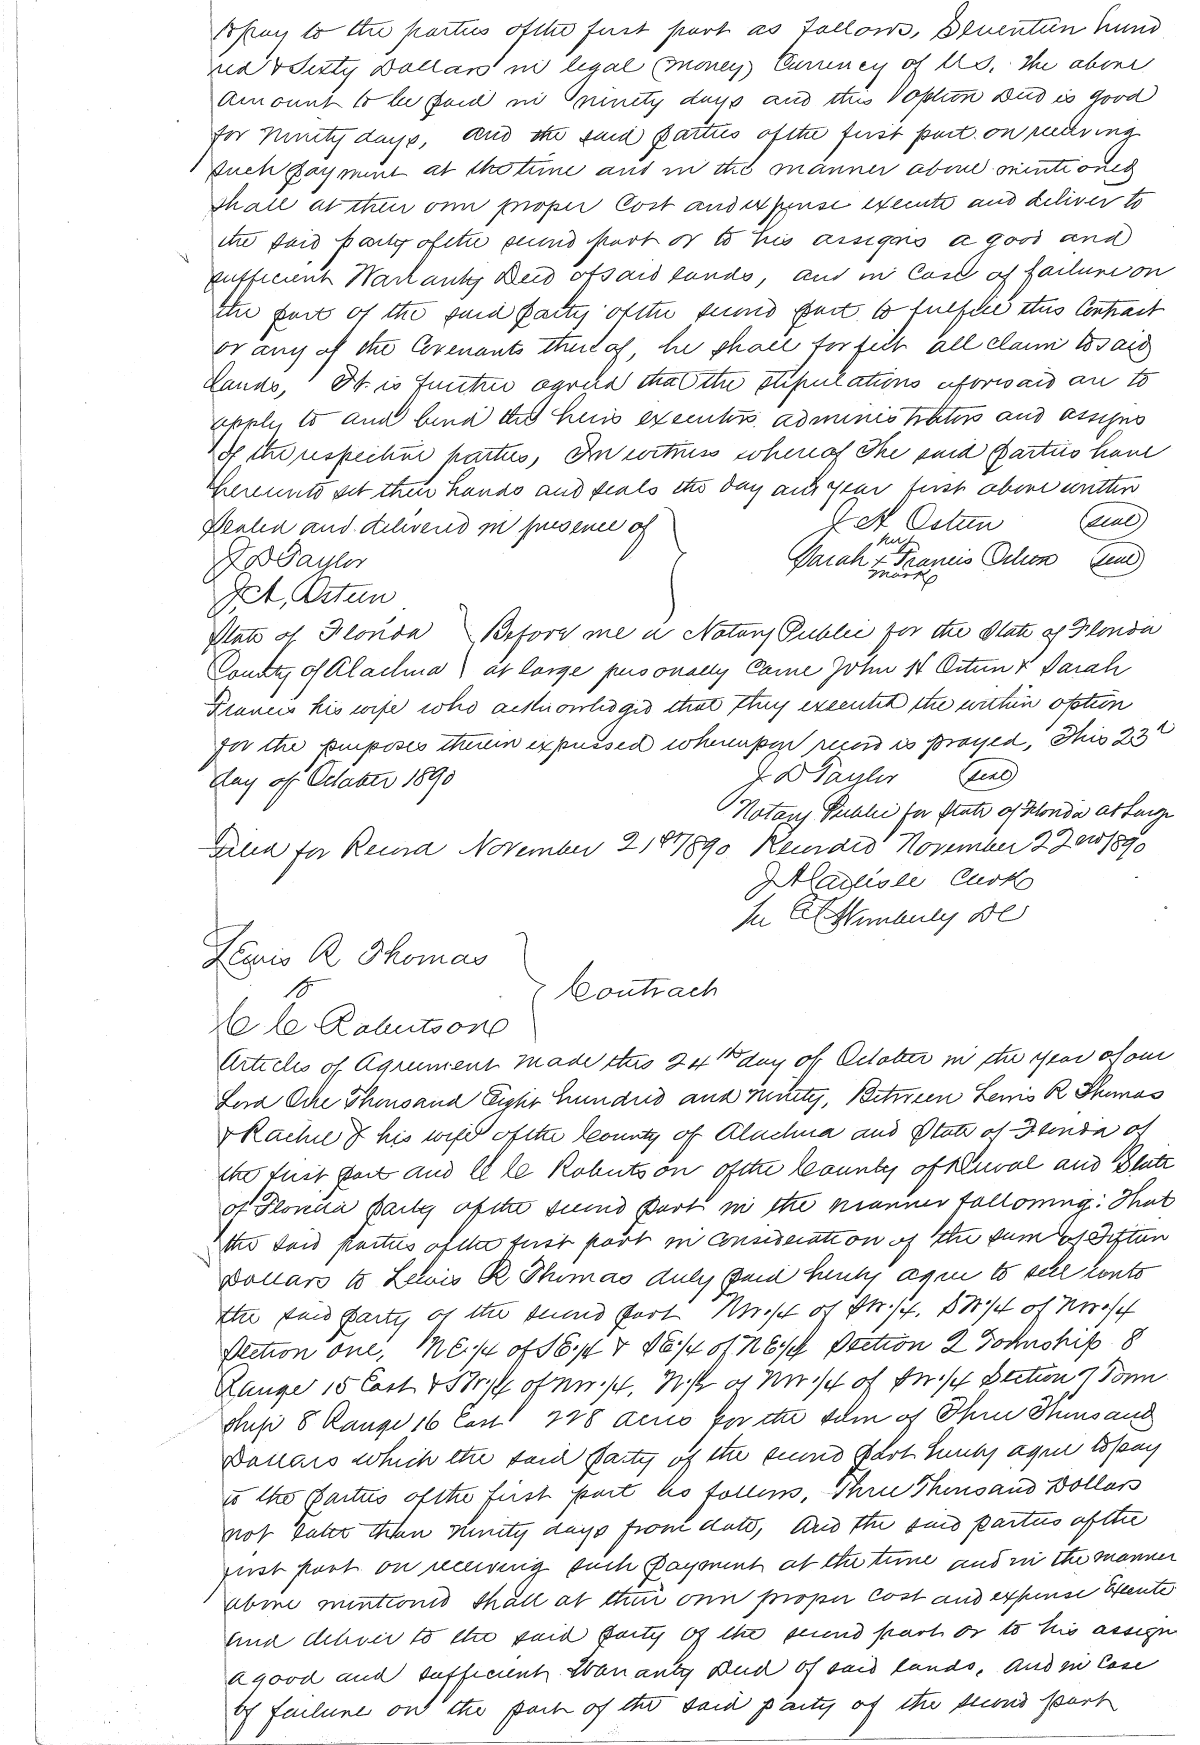 to pay to the parties of the first part as follows, Seventeen hund
red & Sixty Dollars in legal (money) Currency of U.S. The above
amount to be paid in ninety days and this option Deed is good
for ninety days, and the said parties of the first part on receiving
such payment at the time and in the manner above mentioned
shall at their own proper Cost and expense execute and deliver to
the said party of the second part or to his assigns a good and
sufficient Warranty Deed of said lands, and in Case of failure on
the part of the said party of the second part to fulfill this Contract
or any of the Covenants thereof, he shall forfeit all claim to said
lands, It is further agreed that the stipulations aforesaid are to
apply to and bind the heirs executors administrators and assigns
of the respective parties, In witness whereof The said parties have
hereunto set their hands and seals the day and year first above written
Sealed and delivered in presence of J A Osteen (seal)
J D Taylor Sarah her x mark Francis Osteen (seal)
J. A, Osteen
State of Florida } Before me a Notary Public for the State of Florida
County of Alachua } at large personally Came John A Osteen & Sarah
Francis his wife who acknowledged that they executed the within option
for the purposes therein expressed whereupon record is prayed, This 23d
day of October 1890 J D Taylor (seal)
Notary Public for State of Florida at Large
Filed for Record November 21st 1890 Recorded November 22nd 1890
J A Carlisle Clerk
per Wimberly DC
Lewis R Thomas
to } Contract
C C Robertson
Articles of Agreement made this 24th day of October in the year of our
Lord One Thousand Eight hundred and ninety, Between Lewis R Thomas
& Rachel J his wife of the County of Alachua and State of Florida of
the first part and C C Robertson of the County of Duval and State
of Florida party of the second part in the manner following: That
the said parties of the first part in consideration of the sum of Fifteen
Dollars to Lewis R Thomas duly paid hereby agree to sell unto
the said party of the second part NW 1/4 of SW 1/4. SW 1/4 of NW 1/4
Section one, NE 1/4 of SE 1/4 & SE 1/4 of NE 1/4 Section 2 Township 8
Range 15 East & SW 1/4 of NW 1/4, N 1/2 of NW 1/4 of SW 1/4 Section 7 Town
ship 8 Range 16 East 228 acres for the sum of Three Thousand
Dollars which the said party of the second part hereby agree to pay
to the parties of the first part as follows, Three Thousand Dollars
not later than ninety days from date, And the said parties of the
first part on receiving such payment at the time and in the manner
above mentioned shall at their own proper Cost and expense Execute
and deliver to the said party of the second part or to his assign
a good and sufficient Warranty Deed of said lands, and in Case
of failure on the part of the said party of the second part